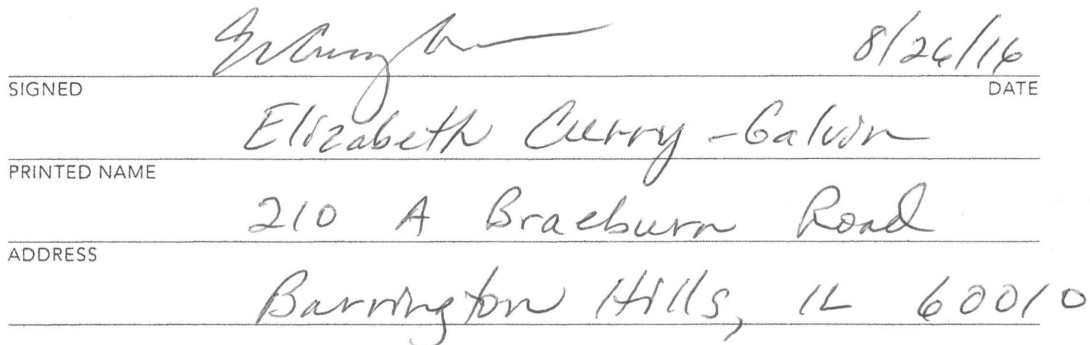 8/26/16
SIGNED DATE
Elizabeth Curry-Galvin
PRINTED NAME
210 A Braeburn Road
ADDRESS
Barrington Hills, IL 60010